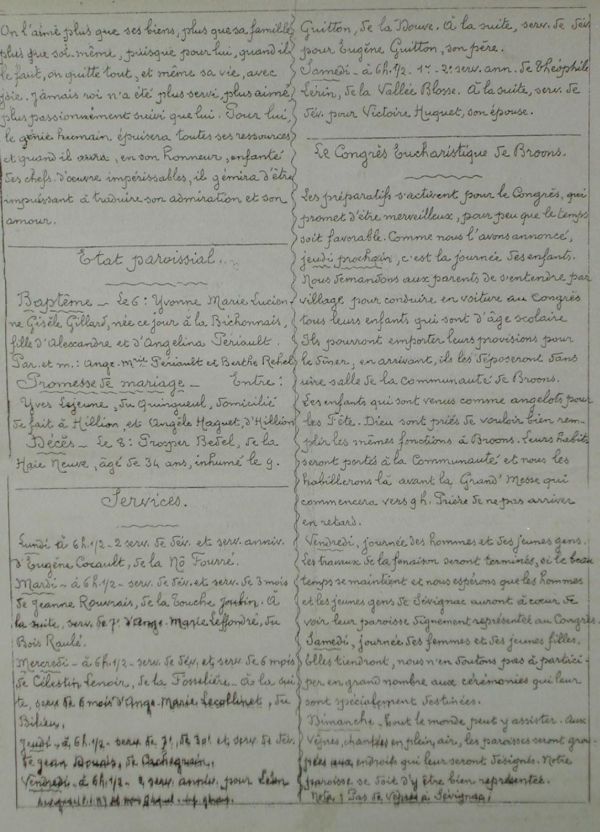 On l'aime plus que ses biens, plus que sa famille
plus que soi-même, puisque pour lui, quand il
le faut, on quitte tout, et même sa vie, avec
joie. Jamais roi n'a été plus servi, plus aimé,
plus passionnément suivi que lui. Pour lui,
le génie humain épuisera toutes ses ressources
et quand il aura, en son honneur, enfanté
des chefs d'œuvre impérissables, il gémira d'être
impuissant à traduire son admiration et son
amour.
Etat paroissial.
Baptême - Le 6: Yvonne Marie Lucien
ne Gisèle Gillard, née ce jour à la Bichonnais,
fille d'Alexandre et d'Angelina Périault.
Par. et m.: Ange-Mie Périault et Berthe Rehel
Promesse de mariage - Entre:
Yves Lejeune, du Quingueul, domicilié
de fait à Hillion, et Angèle Haguet, d'Hillion
Décès - Le 8: Prosper Bedel, de la
Haie Neuve, âgé de 34 ans, inhumé le 9.
Services.
Lundi à 6h.1/2 - 2 serv. de dév. et serv. anniv.
d'Eugène Cocault, de la Nö Fourré.
Mardi - à 6h.1/2 - serv. de dév. et serv. de 3 mois
de Jeanne Rouvrais, de la Touche Joubin. À
la suite, serv. de 7e d'Ange-Marie Leffondré, du
Bois Raulé.
Mercredi - à 6h.1/2 - serv. de dév. et serv de 6 mois
de Célestin Lenoir, de la Fosselière - à la sui
te, serv. de 6 mois d'Ange Marie Lecollinet, du
Bilieu.
Jeudi - à 6h.1/2 - serv. de 7e, de 30e et serv. de dév.
de Jean Douais, de
Vendredi - à 6h.1/2 - 2 serv. anniv. pour Léon
Guitton, de la Douve. À la suite, serv. de dév.
pour Eugène Guitton, son père.
Samedi - à 6h.1/2 - 1er - 2e serv. ann. de Théophile
Lerin, de la Vallée Blosse. À la suite, serv. de
dév. pour Victoire Huguet, son épouse.
Le Congrès Eucharistique de Broons.
Les préparatifs s'activent pour le Congrès, qui
promet d'être merveilleux, pour peu que le temps
soit favorable. Comme nous l'avons annoncé,
jeudi prochain, c'est la journée des enfants.
Nous demandons aux parents de s'entendre par
village pour conduire en voiture au Congrès
tous leurs enfants qui sont d'âge scolaire
Ils pourront emporter leurs provisions pour
le dîner; en arrivant, ils les déposeront dans
une salle de la Communauté de Broons.
Les enfants qui sont venus comme angelots pour
les Fête. Dieu sont priés de vouloir bien rem-
plir les mêmes fonctions à Broons. Leurs habits
seront portés à la Communauté et nous les
habillerons là avant la Grand' Messe qui
commencera vers 9 h. Prière de ne pas arriver
en retard.
Vendredi, journée des hommes et des jeunes gens.
Les travaux de la fenaison seront terminés, si le beau
temps se maintient et nous espérons que les hommes
et les jeunes gens de Sévignac auront à cœur de
voir leur paroisse dignement représentée au Congrès.
Samedi, journée des femmes et des jeunes filles.
Elles tiendront, nous n'en doutons pas à partici-
per en grand nombre aux cérémonies qui leur
sont spécialement destinées.
Dimanche - tout le monde peut y assister. Aux
vêpres, chantées en plein air, les paroisses seront grou-
pées aux endroits qui leur seront désignés. Notre
paroisse se doit d'y être bien représentée.
Nota: Pas de vêpres à Sévignac.